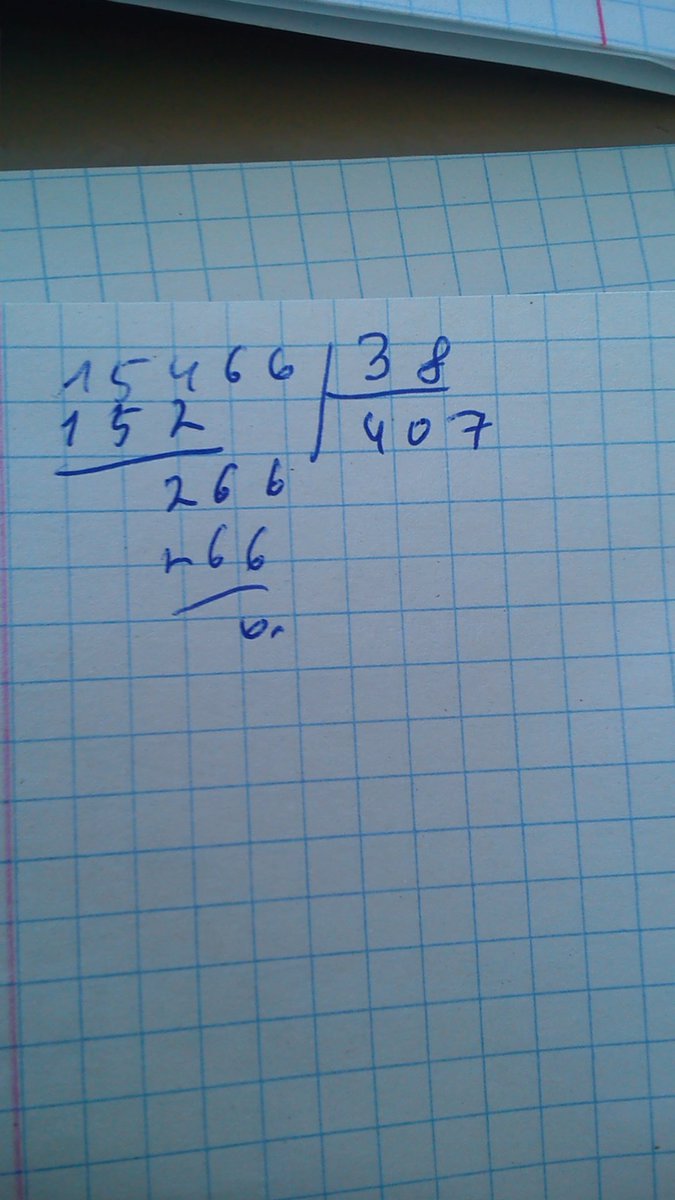 15466 38
152 407
266
266
0